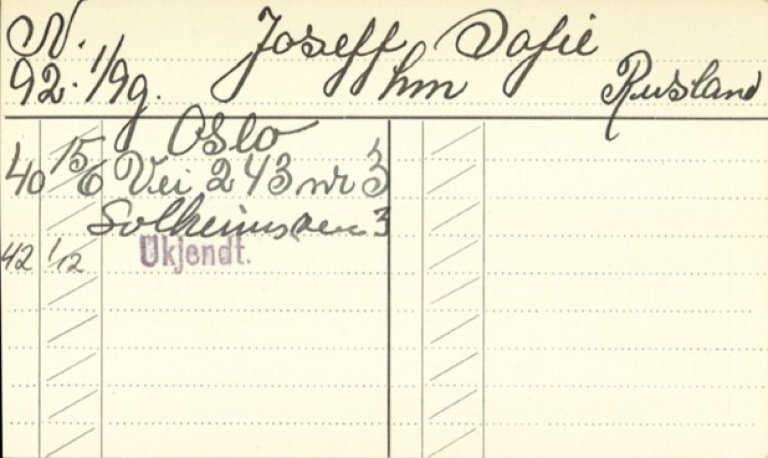 N. Joseff Sofie
92. 1/9 g. hm Rusland
Oslo
40 15/6 Vei 243 nr 3
Solheimsveien 3
42 1/12 Ukjendt.